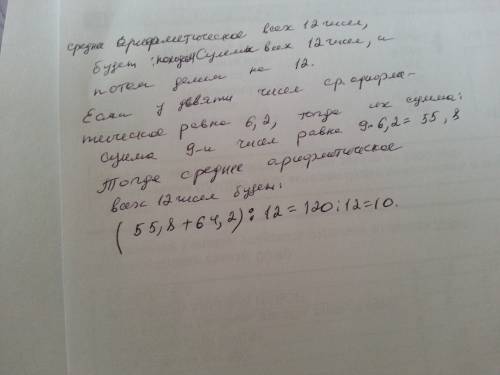 средне арифметическое всех 12 чисел,
будет: находим Сумму всех 12 чисел, и
потом делим на 12.
Если у девяти чисел ср. арифме-
тическое равно 6,2, тогда их сумма:
Сумма 9-и чисел равна 9·6,2=55,8
Тогда среднее арифметическое
всех 12 чисел будет:
(55,8+64,2):12=120:12=10.